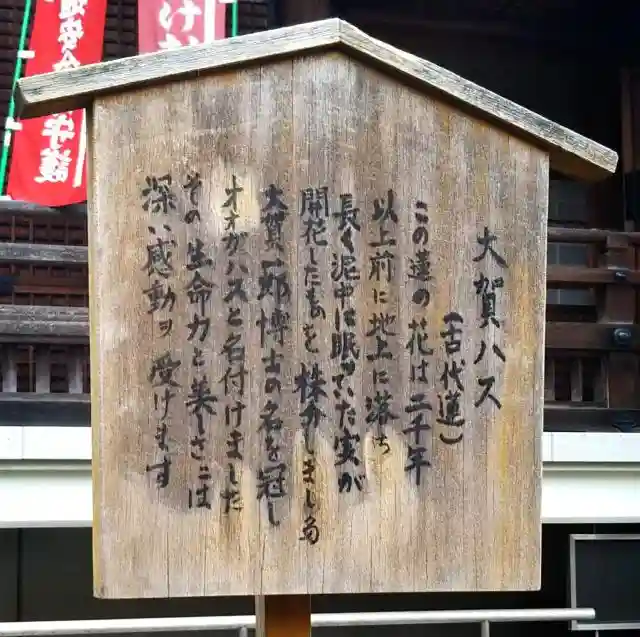 大賀ハス
(古代蓮)
この蓮の花は二千年
以上前に地上に落ち
長く泥中に眠っていた実が
開花したものを株分しました
大賀一郎博士の名を冠し
オオガハスと名付けました
その生命力と美しさには
深い感動ヲ受けます